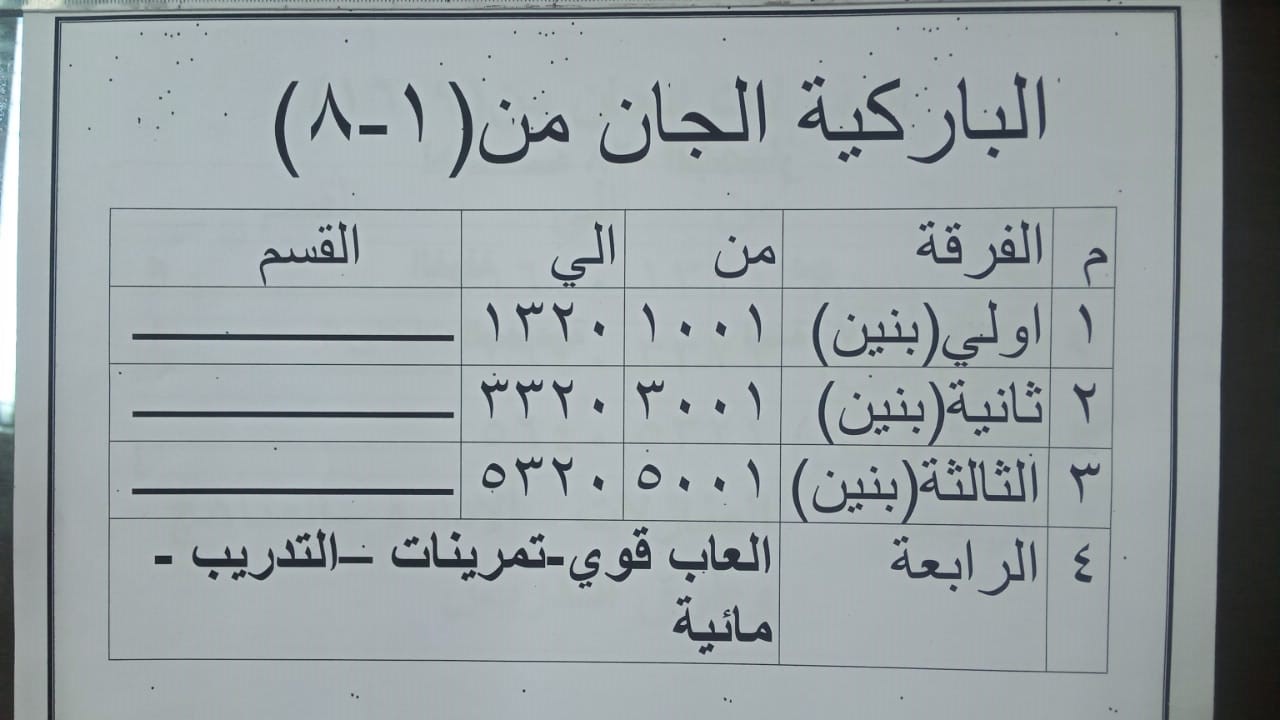 الباركية الجان من(١-٨)
م الفرقة من الي القسم
١ اولي(بنين) ١٠٠١ ١٣٢٠
٢ ثانية(بنين) ٣٠٠١ ٣٣٢٠
٣ الثالثة(بنين) ٥٠٠١ ٥٣٢٠
٤ الرابعة العاب قوي-تمرينات –التدريب -
مائية